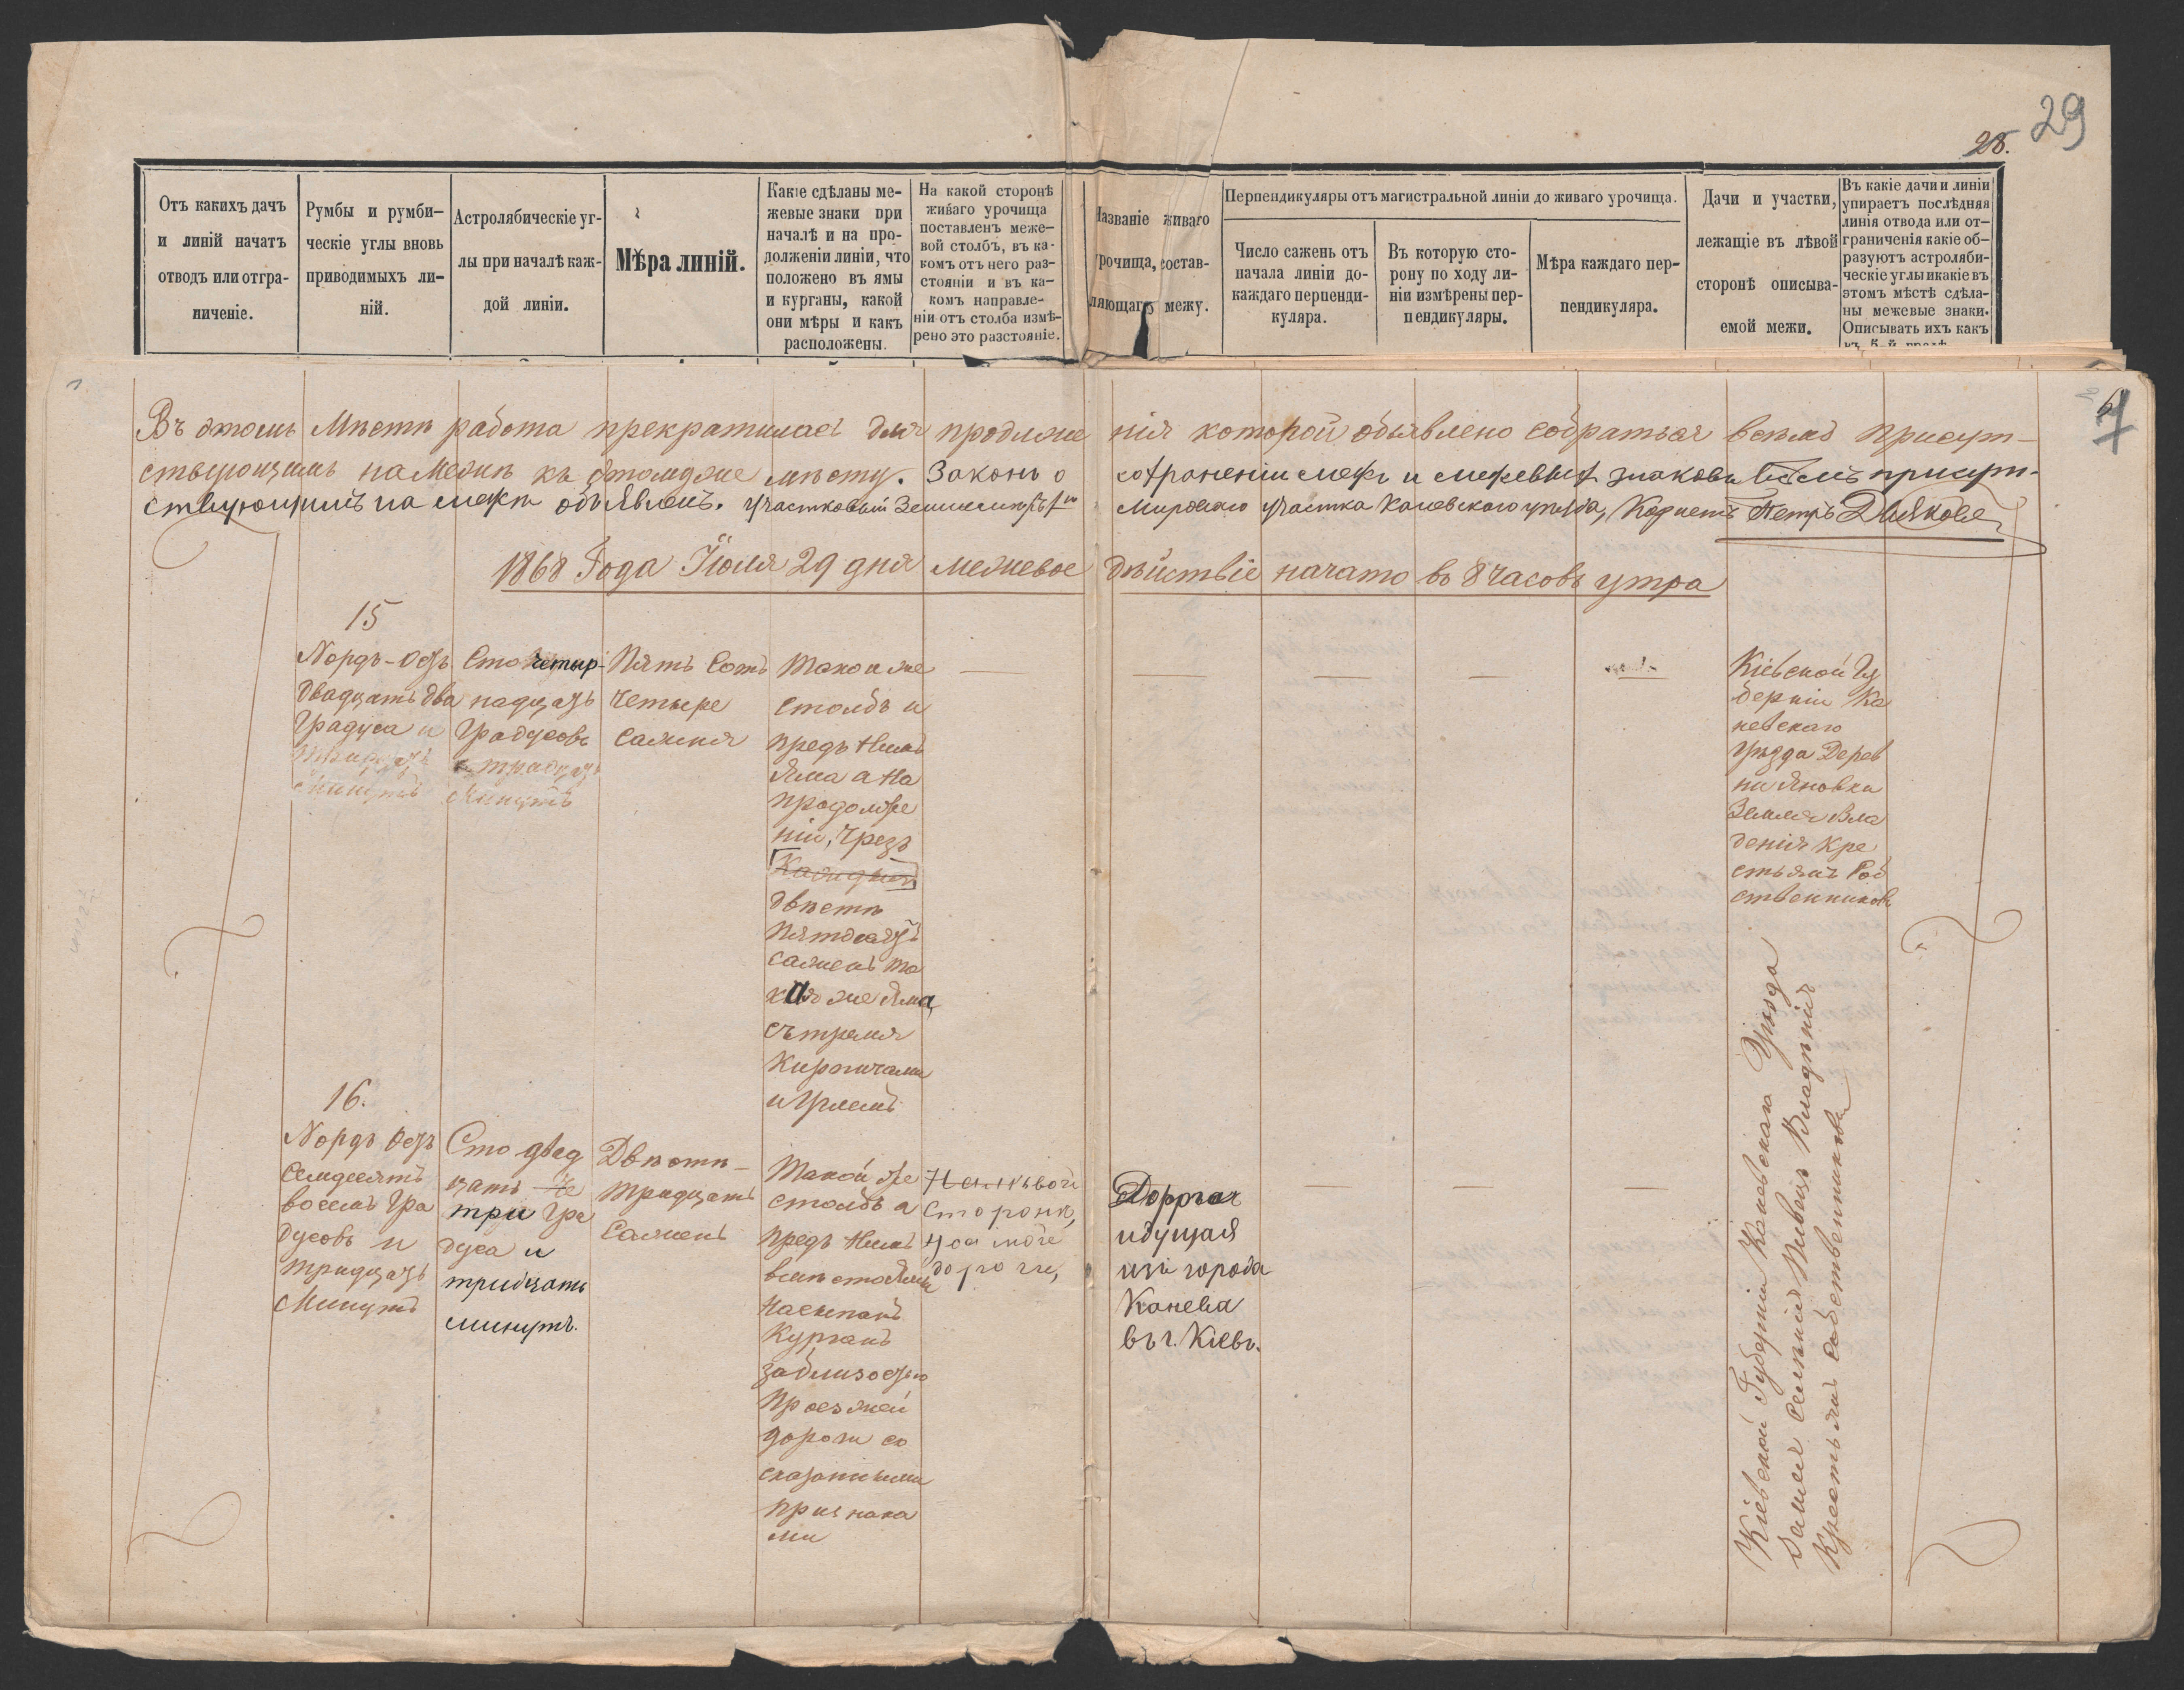 29
28.
Отъ какихъ дачъ
и линій начатъ
отводъ или отгра-
ниченіе.
Румбы и румби-
ческіе углы вновь
приводимыхъ ли-
ній.
Астролябическіе уг-
лы при началѣ каж-
дой линіи.
Мѣра линій.
Какіе сдѣланы ме-
жевые знаки при
началѣ и на про-
долженіи линіи, что
положено въ ямы
и курганы, какой
они мѣры и какъ
расположены.
На какой сторонѣ
живаго урочища
поставленъ меже-
вой столбъ, въ ка-
комъ отъ него раз-
стояніи и въ ка-
комъ направле-
ніи отъ столба измѣ-
рено это разстояніе.
Названіе живаго
урочища, состав-
ляющаго межу.
Перпендикуляры отъ магистральной линіи до живаго урочища.
Число сажень отъ
начала линіи до-
каждаго перпенди-
куляра.
Въ которую сто-
рону по ходу ли-
ніи измѣрены пер-
пендикуляры.
Мѣра каждаго пер-
пендикуляра.
Дачи и участки,
лежащіе въ лѣвой
сторонѣ описыва-
емой межи.
Въ какіе дачи и линіи
упираетъ послѣдняя
линія отвода или от-
граниченія какіе об-
разуютъ астроляби-
ческіе углы и какіе въ
этомъ мѣстѣ сдѣла-
ны межевые знаки.
Описывать ихъ какъ
въ 5-й графѣ
7
Въ этомъ Мѣстѣ работа прекратилась для продолже нія которой объявлено собраться всѣмъ присут-
ствующимъ на Межѣ къ этомуже мѣсту. Законъ о сохраненіи межъ и межевыхъ знаковъ всѣмъ присут-
ствующимъ на межѣ объявленъ. Участковый Землемѣръ 1го Мироваго участка Каневскаго уѣзда, Корнетъ Петръ Дьяковъ
1868 Года Іюля 29 дня межевое дѣйствіе начато въ 8 часовъ утра
15
Nордъ-Остъ
двадцать два
градуса и
тридцать
минутъ
Сто четыр-
надцать
градусовъ
и тридцать
минутъ
Пять Сотъ
четыре
сажня
Такой же
столбъ и
предъ нимъ
Яма а на
продолже
ніи, чрезъ
Каждыя
двѣсти
пятдесятъ
сажень та
кая же Яма,
съ тремя
Кирпичами
и Углемъ
Кіевской Гу
берніи Ка
невскаго
Уѣзда Дерев
ни Яновки
Земля Вла
денія Кре
стьянъ Соб
ственниковъ
16.
Nордъ Остъ
Семдесятъ
восемь Гра
дусовъ и
тридцать
Минутъ
Сто двад
цать че
три гра
дуса и
тридцать
минутъ.
Двѣсти
тридцать
Сажень
Такой же
столбъ а
предъ нимъ
вмѣсто Ямы
насыпанъ
Курганъ
за близостью
Проезжей
дороги со
сказанными
признака
ми
На лѣвой
сторонѣ,
дороги,
Дорога
идущая
изъ города
Канева
въ г. Кіевъ.
Кіевской Губерніи Каневскаго Уѣзда
Замля селенія Пивецъ Владѣнія
Крестьянъ собственниковъ